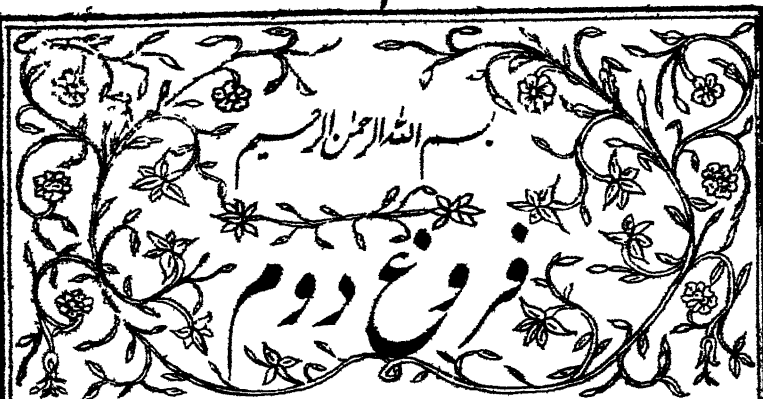 بسم الله الرحمن الرحيم
فروغ دوم